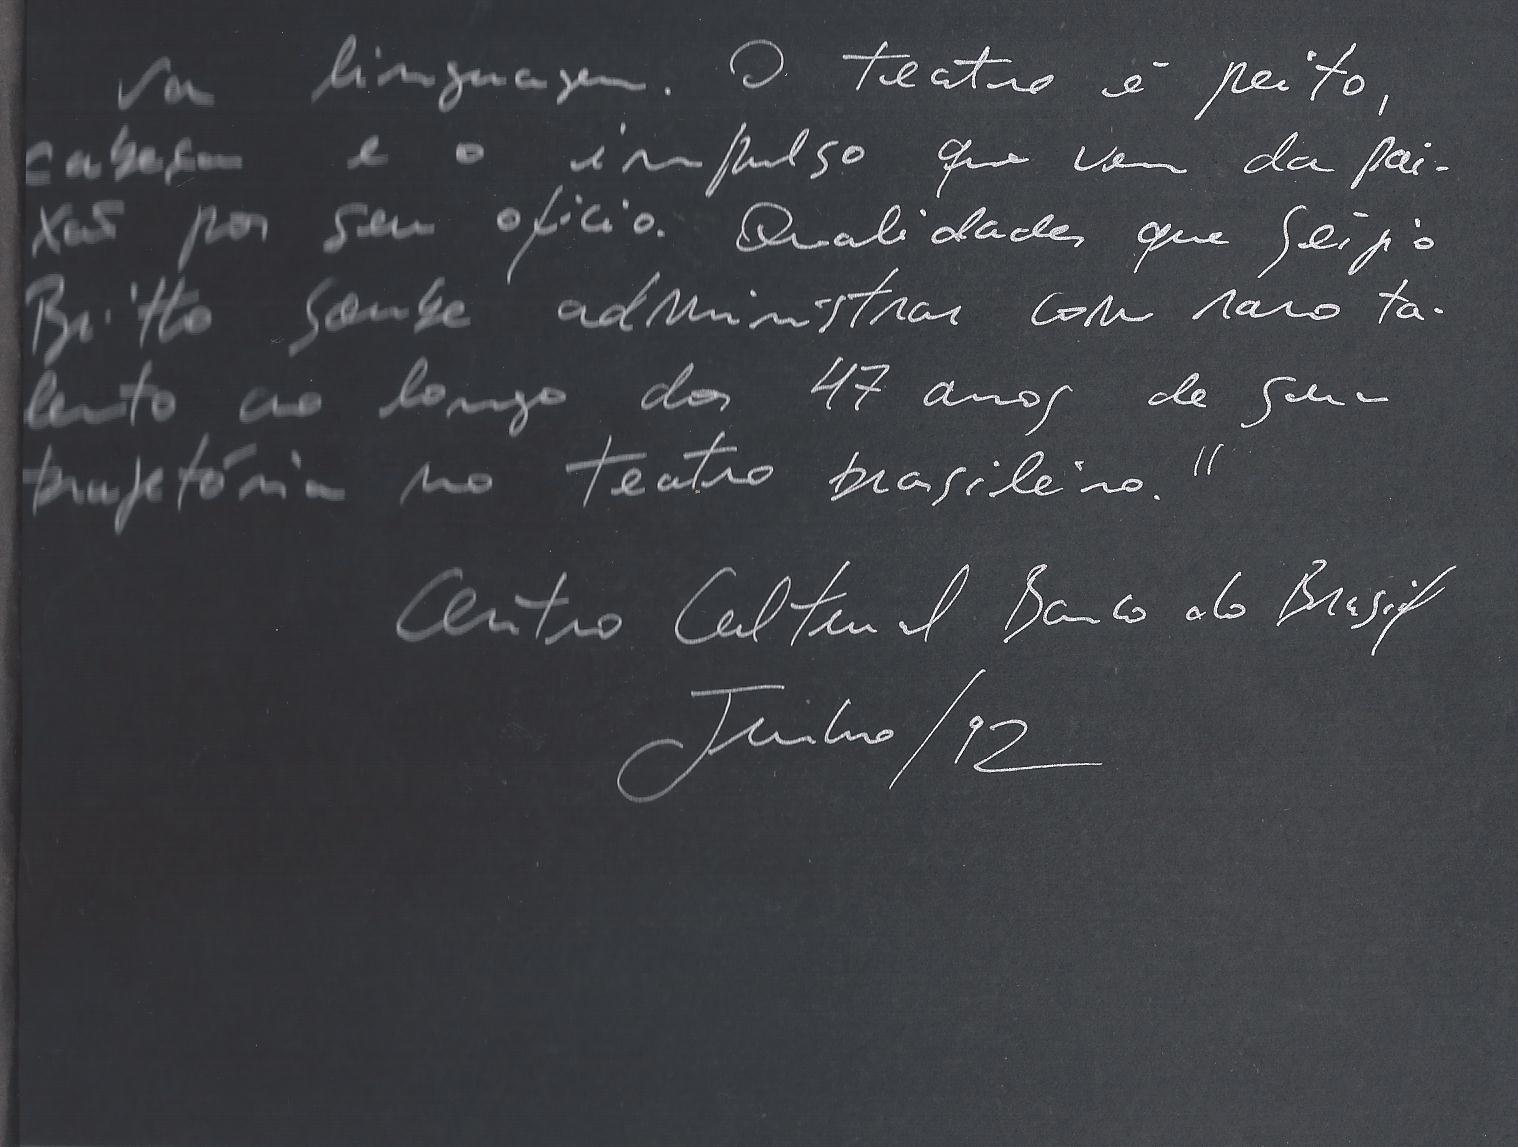 va linguagem. O teatro é peito,
cabeça e o impulso que vem da pai-
xão por seu ofício. Qualidades que Sérgio
Britto soube administrar com raro ta-
lento ao longo dos 47 anos de sua
trajetória no teatro brasileiro."
Centro Cultural Banco do Brasil
Junho/92